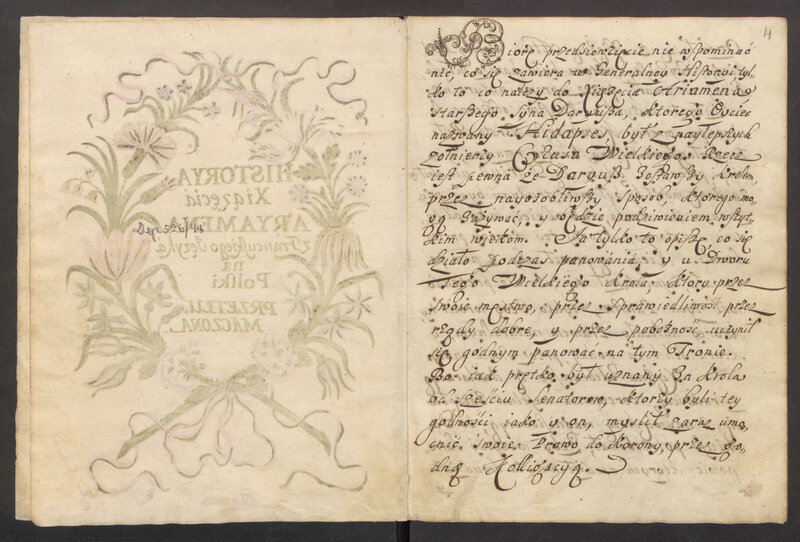 HISTORYA
Xiążęcia
ARYAMENA
z Francuskiego Języka
na
Polski
PRZETŁU,
MACZONA.
Dep 526/94
4
Biorę przedsięwzięcie nie wspominać
nic, co się zawiera w Generalney Historyi, tyl,
ko to co należy do Xiążęcia Ariamena
starszego Syna Daryusza, ktorego Oyciec
nazwany Hidaspes, był z naylepszych
żołnierzy Czasu Wielkiego. Rzecz
iest pewna że Daryusz zostawszy Krolem
przez nayosobliwszy sposob, ktorego mo,
gą zażywać, y będzie podziwieniem wszyt,
kim wiekom. Ja tylko to opiszę co się
działo podczas panowánia, y u Dworu
Tego Wielkiego Krola, ktory przez
swoie męstwo, przez sprawiedliwość, przez
rządy dobre, y przez pobożność, uczynił
się godnym panować na tym Tronie.
Bo iak prętko był uznany za Krola
od sześciu Senatorow, ktorzy byli tey
godności iako y on, myslił zaraz umo,
cnić swoie Prawo do Korony, przez go,
dną Kolligacyą.